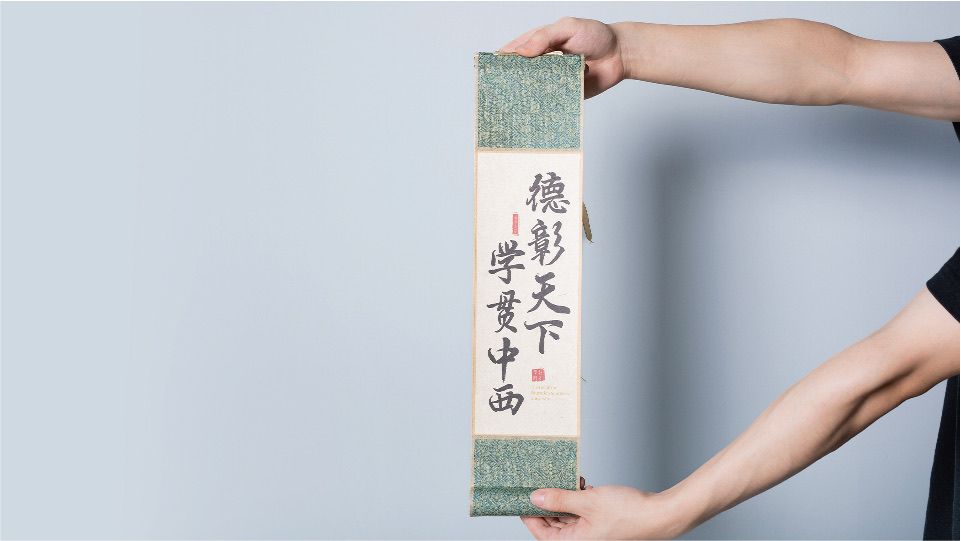 德彰天下
学贯中西